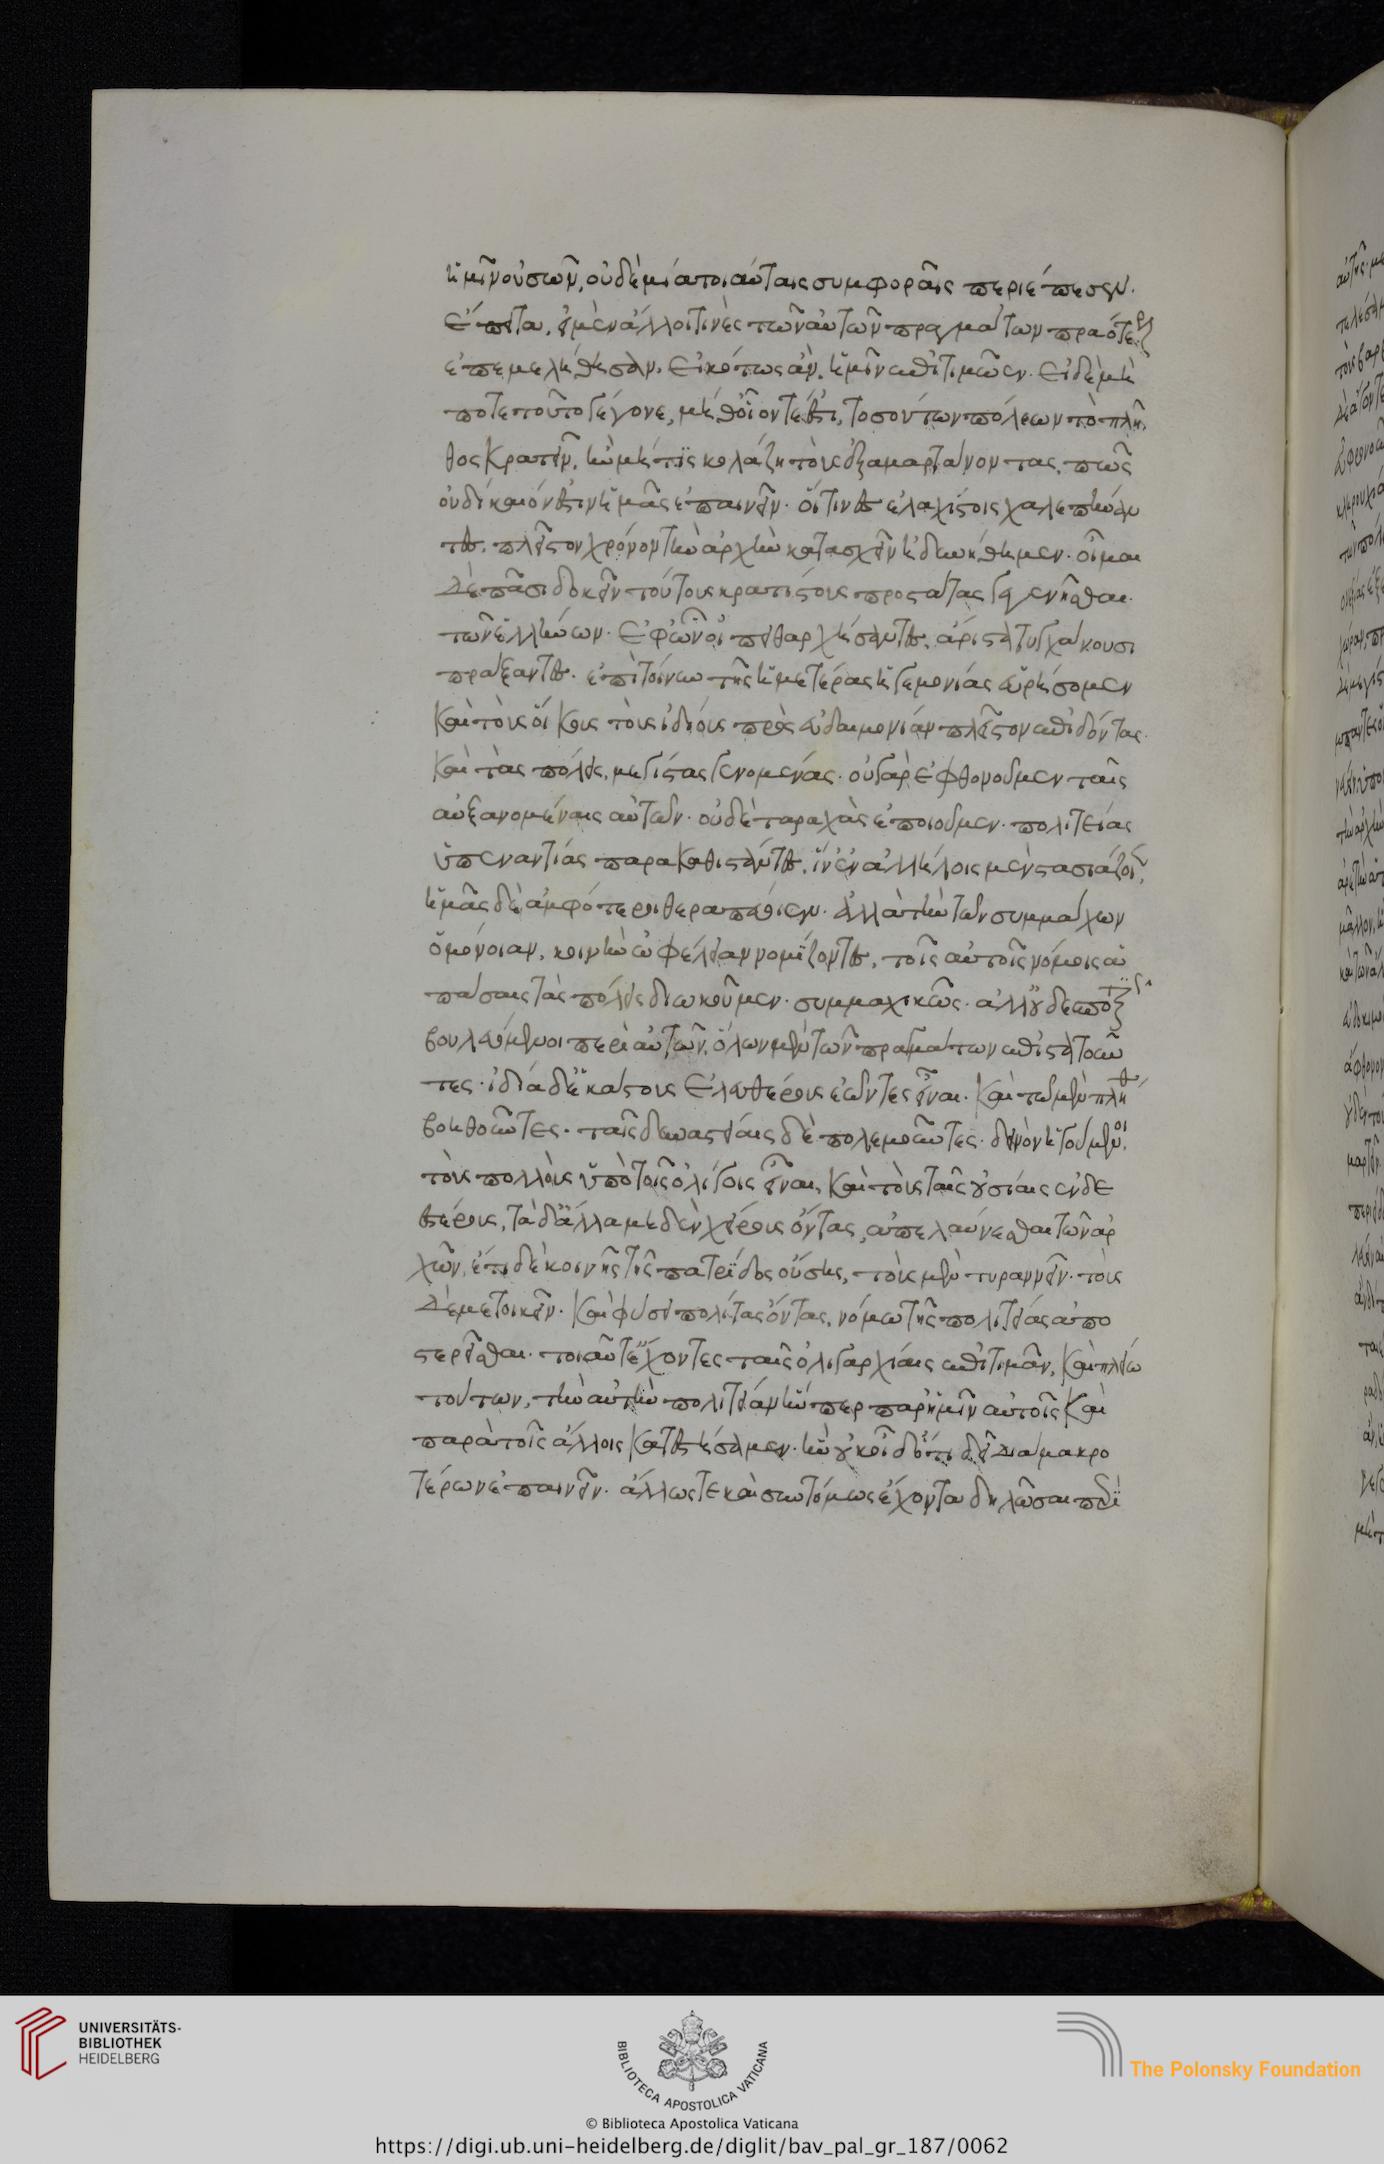 ἡμῖν οὐσῶν, οὐδὲ μία τοιαύταις συμφοραῖς περιέπεσεν.
Ἔπειτα, εἰ μὲν ἄλλοι τινὲς τῶν αὐτῶν πραγμάτων πραότερον
ἐπεμελήθησαν, εἰκότως ἂν, ἡμῖν ἐπιτιμῶεν. εἰ δὲ μή
ποτε τοῦτο γέγονε, μήθ' οἷόν τέ ἐστι, τοσούτων πόλεων τὸ πλῆ
θος κρατεῖν, ἢν μή τις κολάζη τοὺς ἐξαμαρτάνοντας, πῶς
οὐ δίκαιόν ἐστιν ἡμᾶς ἐπαινεῖν. οἵτινες ἐλαχίστοις χαλεπήναν
τες, πλεῖστον χρόνον τὴν ἀρχὴν κατασχεῖν ἠδυνήθημεν. οἶμαι
δὲ πᾶσι δοκεῖν τούτους κρατίστους προστάτας γενέσθαι.
τῶν ἑλλήνων. ἐφ' ὧν οἱ πειθαρχήσαντες, ἄριστα τυγχάνουσι
πράξαντες. ἐπὶ τοίνυν τῆς ἡμετέρας ἡγεμονίας εὑρήσομεν
καὶ τοὺς οἴκους τοὺς ἰδίους πρὸς εὐδαιμονίαν πλεῖστον ἐπιδόντας.
καὶ τὰς πόλεις, μεγίστας γενομένας. οὐ γὰρ ἐφθονοῦμεν ταῖς
αὐξανομέναις αὐτῶν. οὐδὲ ταραχὰς ἐποιοῦμεν. πολιτείας
ὑπεναντίας παρακαθιστάντες, ἵν' ἐν ἀλλήλοις μὲν στασιάζοιεν,
ἡμᾶς δὲ ἀμφότεροι θεραπεύοιεν. ἀλλὰ τὴν τῶν συμμάχων
ὁμόνοιαν, κοινὴν ὠφέλειαν νομίζοντες, τοῖς αὐτοῖς νόμοις ἁ
πάσας τὰς πόλεις διωκοῦμεν. συμμαχικῶς. ἀλλ' οὐ δεσποτικῶς
βουλευόμενοι περὶ αὐτῶν. ὅλων μὲν τῶν πραγμάτων ἐπιστατοῦν
τες. ἰδία δὲ ἑκάστους ἐλευθέρους ἐῶντες εἶναι. καὶ τῶ μὲν πλήθει
βοηθοῦντες. ταῖς δυναστείαις δὲ πολεμοῦντες. δεινὸν ἡγούμενοι
τοὺς πολλοὺς ὑπὸ τοῖς ὀλίγοις εἶναι, καὶ τοὺς ταῖς οὐσίαις ἐνδε
εστέρους, τὰ δ' ἄλλα μηδὲν χείρους ὄντας, ἀπελαύνεσθαι τῶν ἀρ
χῶν. ἔτι δὲ κοινῆς τῆς πατρίδος οὔσης, τοὺς μὲν τυραννεῖν. τοὺς
δὲ μετοικεῖν. καὶ φύσει πολίτας ὄντας, νόμω τῆς πολιτείας ἀπο
στερεῖσθαι. τοιαῦτ' ἔχοντες ταῖς ὀλιγαρχίαις ἐπιτιμᾶν, καὶ πλείω
τούτων, τὴν αὐτὴν πολιτείαν ἥνπερ παρ' ἡμῖν αὐτοῖς καὶ
παρὰ τοῖς ἄλλοις κατεστήσαμεν. ἣν οὐκ οἶδ' ὅ,τι δεῖ διὰ μακρο
τέρων ἐπαινεῖν. ἄλλως τε καὶ συντόμως ἔχοντα δηλῶσαι περὶ
UNIVERSITÄTS-
BIBLIOTHEK
HEIDELBERG
BIBLIOTECA APOSTOLICA VATICANA
The Polonsky Foundation
© Biblioteca Apostolica Vaticana
https://digi.ub.uni-heidelberg.de/diglit/bav_pal_gr_187/0062